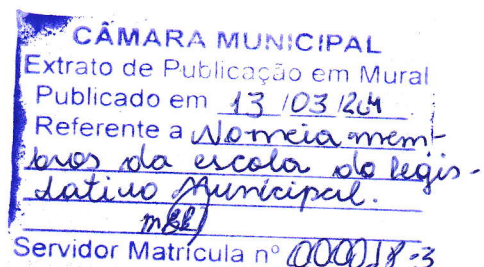 CÂMARA MUNICIPAL
Extrato de Publicação em Mural
Publicado em 13 /03 /24
Referente a Nomeia mem-
bros da escola do legis-
lativo Municipal.
Servidor Matrícula nº 000018-3